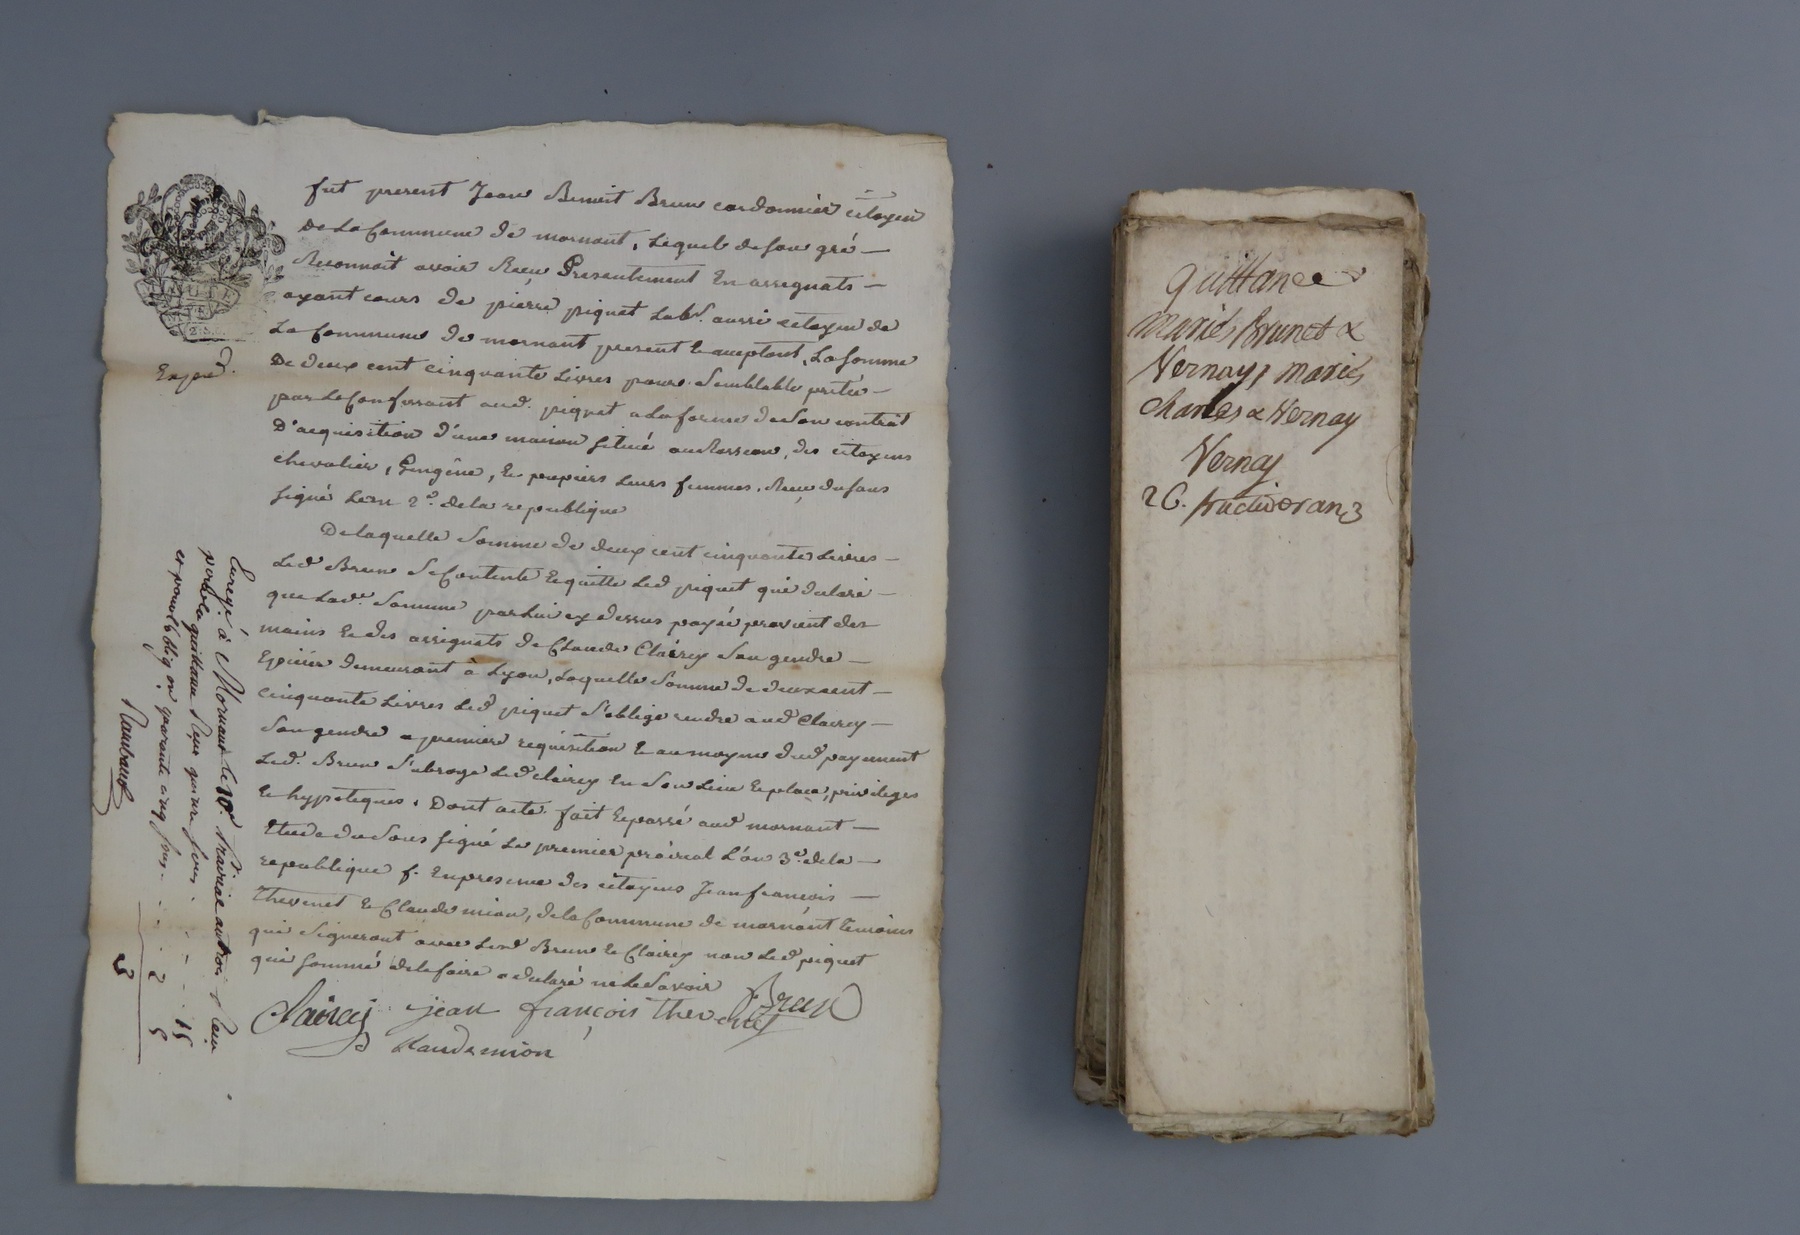 fut present Jean Benoit Brun cordonnier citoyen
De La Commune de mornant, Lequel de son gré —
Reconnoit avoir Reçu Presentement En assignats —
ayant cours de pierre piquet Lab.r aussi citoyen de
La Commune de mornant present & acceptant, La somme
De deux cent cinquante Livres pour semblable prétée —
par Le Confessant aud. piquet a La forme de son contrat
D'acquisition d'une maison située des citoyens
chevalier, & leurs femmes, Reçu du sous
signé 2e. de la republique
De laquelle somme de deux cent cinquante Livres —
Led Brun se Contente & quitte Led piquet qui declare —
que Lade. somme par Lui cy dessus payée provient des
mains & des assignats de Claude Clairey son gendre —
Epicier demeurant à Lyon, Laquelle somme de deux cent —
cinquante Livres Led piquet s'oblige rendre aud Clairey —
son gendre a premiere requisition & au moyen dud payement
Led. Brun subroge Led Clairey En son Lieu & place, privileges
& hypoteques. Dont acte. fait & passé aud mornant —
Etude du sous signé Le premier prairial L'an 3e. de la —
republique f. En presence des citoyens Jean françois —
Thevenet & Claude mion, de la Commune de mornant temoins
qui signeront avec Lesd Brun & Clairey non Led piquet
qui sommé de le faire a declaré ne Le savoir
Clairey jean françois thevenet Brun
Claude mion
Exped.
Enregé. à Mornant le 10e. Prairial an trois Reçu
pour la quittance Reçu quinze sous . - - . 15
et pour l'oblig.on quarante cinq sous . . . 2 5
3
Rambaud
quittance
mariés Brunet &
Vernay, mariés
charles & Vernay
Vernay
26. fructidor an 3